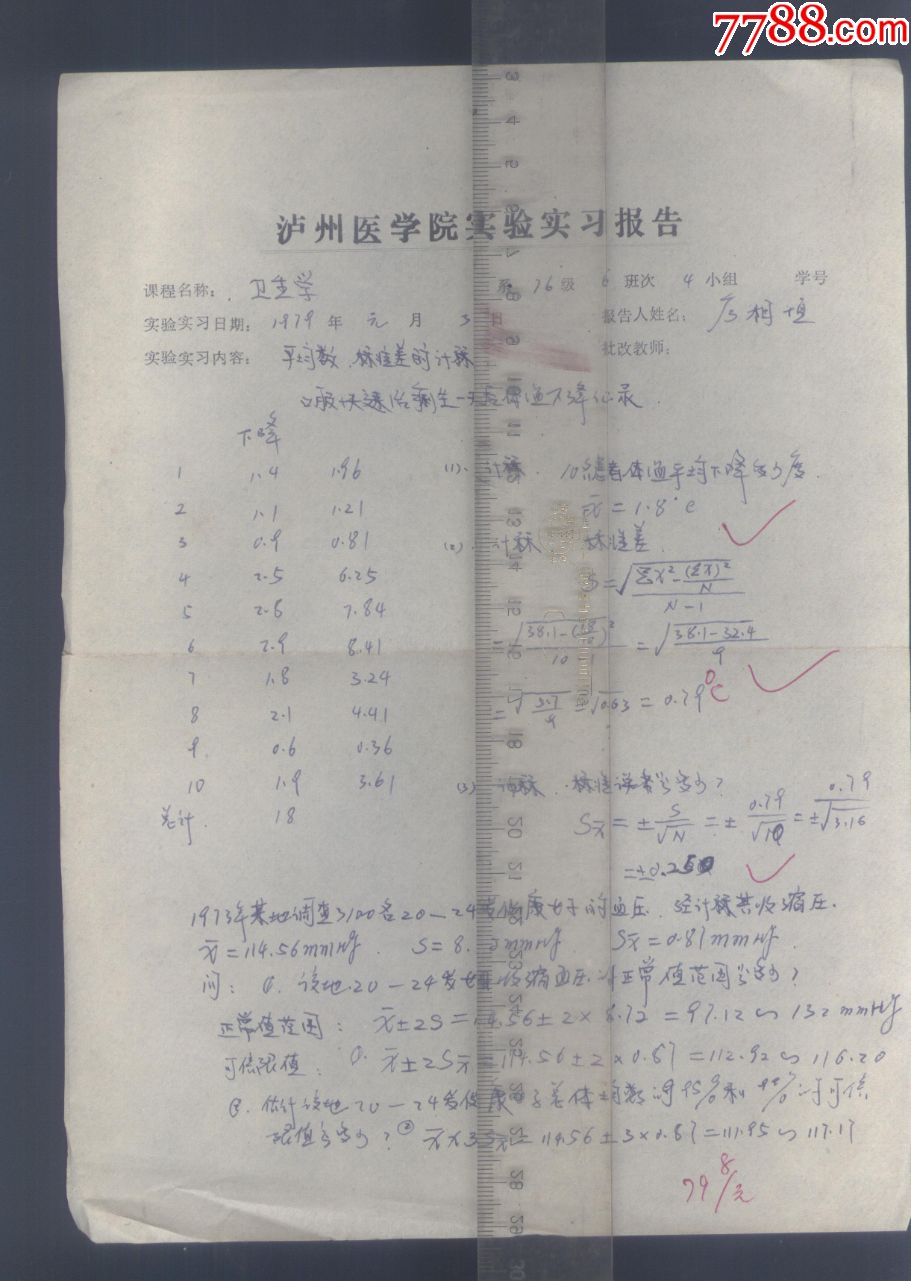 7788.com
泸州医学院实验实习报告
课程名称: 卫生学 系 76级 6 班次 4 小组 学号
实验实习日期: 1979 年 元 月 3 日 报告人姓名:
实验实习内容: 平均数、标准差的计祘 批改教师:
下降
1 1.4 1.96 (1). 计祘 10 患者体温平均下降多少度.
2 1.1 1.21 x̄=1.8°C
3 0.9 0.81 (2). 计祘 标准差
4 2.5 6.25 S=√(Σx²-(Σx)²/N)/(N-1)
5 2.8 7.84
6 2.9 8.41 = √(38.1-32.4)/9
7 1.8 3.24 = √5.7/9 = √0.63 = 0.79°C
8 2.1 4.41
9 0.6 0.36
10 1.9 3.61 (3) 计祘 标准误是多少?
总计 18 Sx̄=±S/√N=±0.79/√10=±0.79/3.16
=±0.250
1973年某地调查了100名20—24岁健康女子的血压, 经计祘其收缩压.
x̄=114.56mmHg S=8. mmHg Sx̄=0.87mmHg
问: ①. 该地20—24岁女 收缩血压 正常值范围是多少?
正常值范围: x̄±2S=114.56±2×8.72=97.12~132mmHg
可信限值: ①. x̄±2Sx̄=114.56±2×0.87=112.92~116.20
②. 估计该地20—24岁健康女子总体均数的95%和99%的可信
限值是多少? ② x̄±3Sx̄=114.56±3×0.87=111.95~117.17
79 8/元